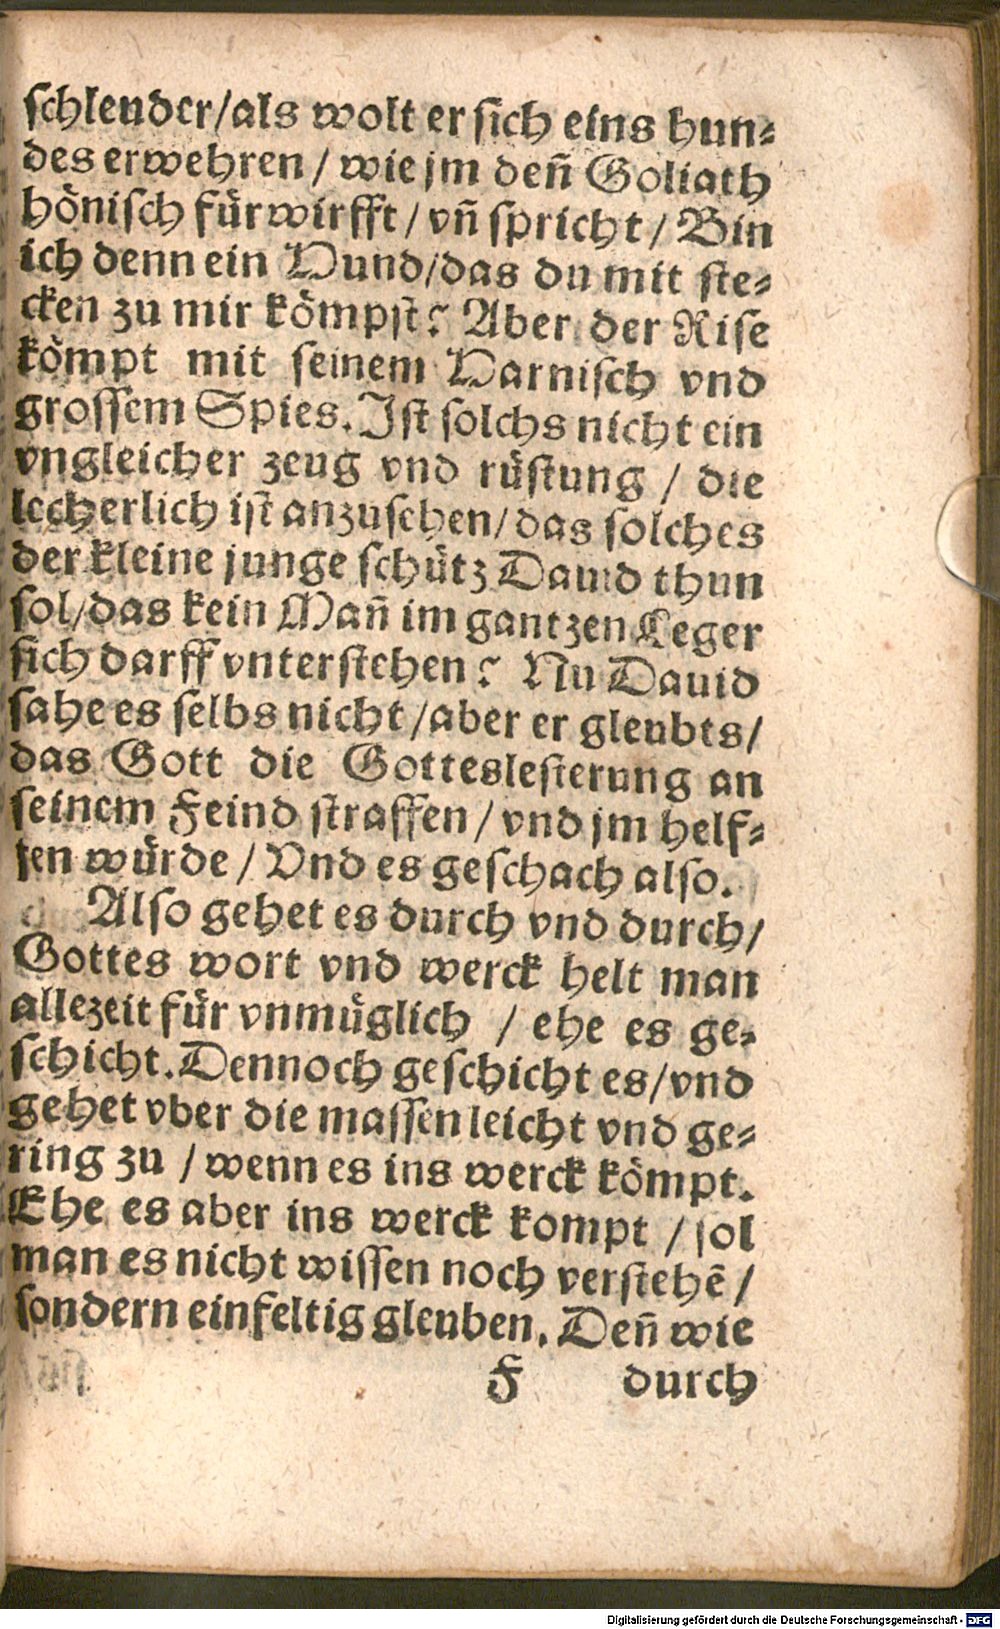 schleuder/als wolt er sich eins hun⸗
des erwehren / wie jm deñ Goliath
hönisch fürwirfft / vñ spricht / Bin
ich denn ein Hund/das du mit ste⸗
cken zu mir kömpst? Aber der Rise
kömpt mit seinem Harnisch vnd
grossem Spies. Ist solchs nicht ein
vngleicher zeug vnd rüstung / die
lecherlich ist anzusehen/das solches
der kleine junge schütz Dauid thun
sol/das kein Mañ im gantzen Leger
sich darff vnterstehen? Nu Dauid
sahe es selbs nicht /aber er gleubts/
das Gott die Gotteslesterung an
seinem Feind straffen / vnd jm helf⸗
fen würde / Vnd es geschach also.
Also gehet es durch vnd durch/
Gottes wort vnd werck helt man
allezeit für vnmüglich / ehe es ge⸗
schicht. Dennoch geschicht es/vnd
gehet vber die massen leicht vnd ge⸗
ring zu / wenn es ins werck kömpt.
Ehe es aber ins werck kompt / sol
man es nicht wissen noch verstehẽ /
sondern einfeltig gleuben. Deñ wie
F durch
Digitalisierung gefördert durch die Deutsche Forschungsgemeinschaft - DFG